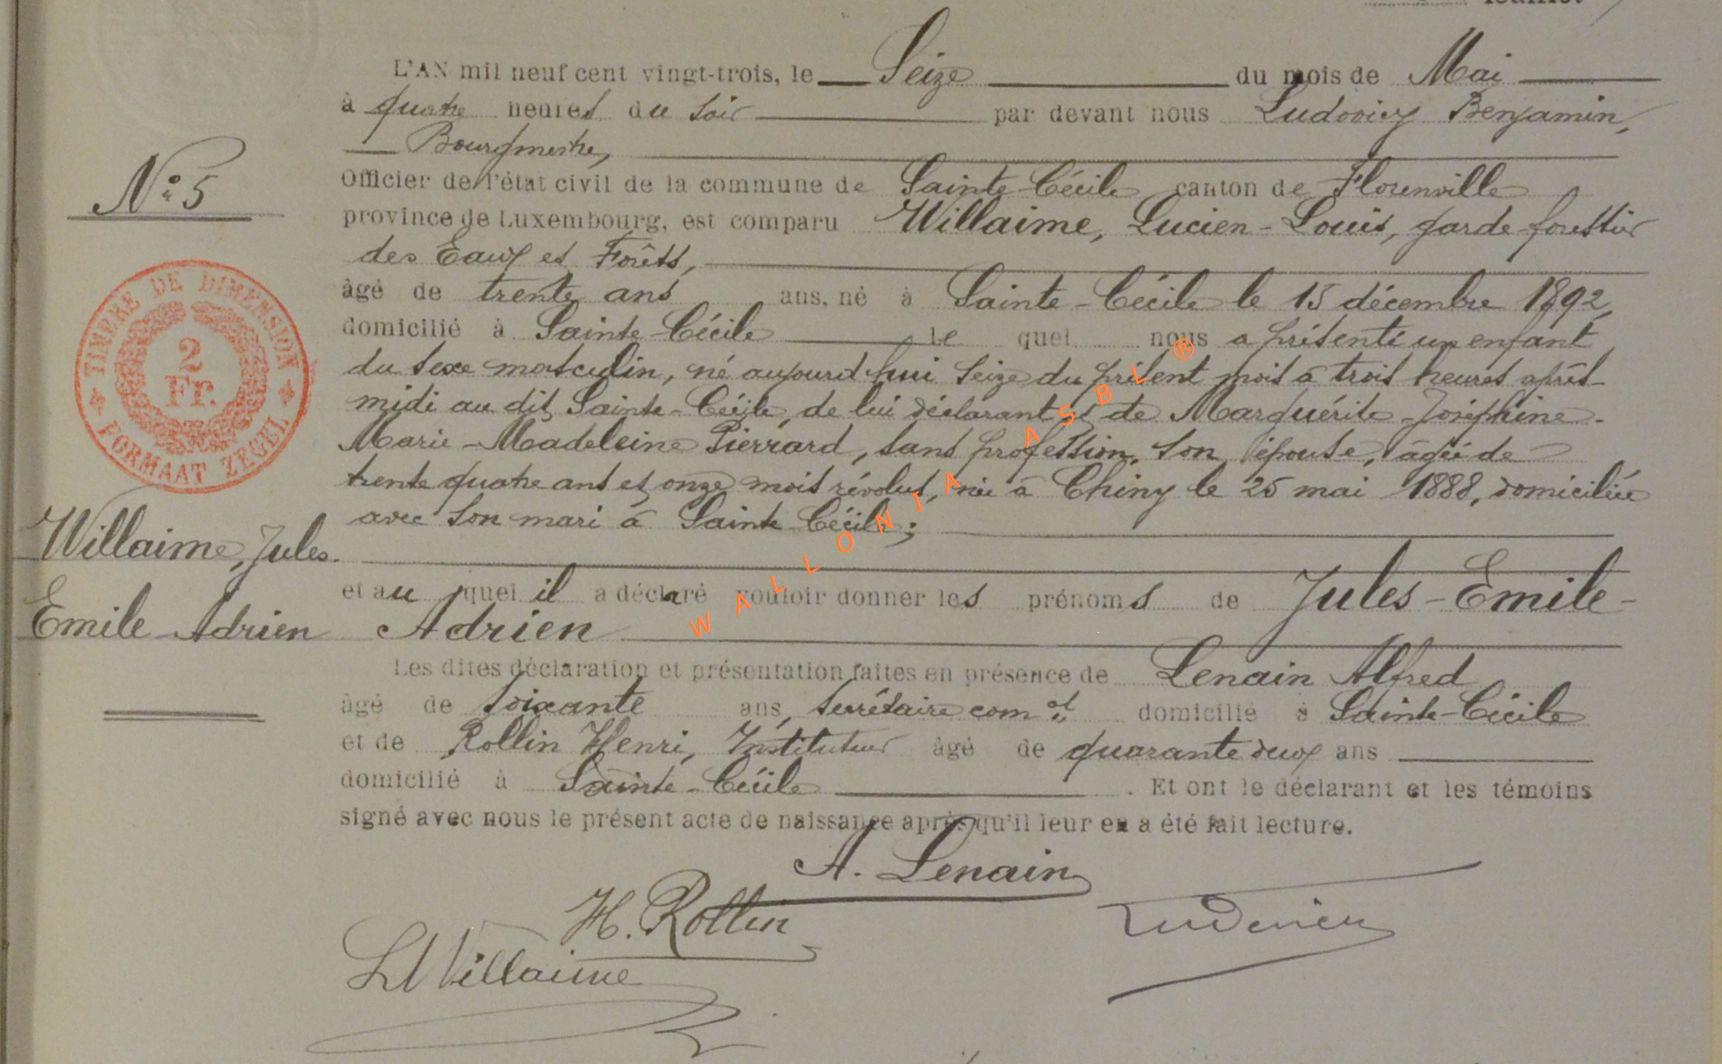 feuillet
L'AN mil neuf cent vingt-trois, le Seize du mois de Mai
à quatre heures du soir par devant nous Ludovicy Benjamin,
Bourgmestre,
Officier de l'état civil de la commune de Sainte-Cécile canton de Florenville
N° 5
province de Luxembourg, est comparu Willaime, Lucien-Louis, garde-forestier
des Eaux et Forêts,
âgé de trente ans ans, né à Sainte-Cécile le 15 décembre 1892,
domicilié à Sainte-Cécile le quel nous a présenté un enfant
du sexe masculin, né aujourd'hui seize du présent mois à trois heures après-
midi au dit Sainte-Cécile, de lui déclarant et de Marguérite-Joséphine-
Marie-Madeleine Pierrard, sans profession, son épouse, âgée de
trente quatre ans et onze mois révolus, née à Chiny le 25 mai 1888, domiciliée
avec son mari à Sainte Cécile;
TIMBRE DE DIMENSION
2
Fr.
FORMAAT ZEGEL
Willaime, Jules
Emile Adrien
et au quel il a déclaré vouloir donner les prénoms de Jules-Emile-
Adrien
Les dites déclaration et présentation faites en présence de Lenain Alfred
âgé de soixante ans, secrétaire com.al domicilié à Sainte-Cécile
et de Rollin Henri, Instituteur âgé de quarante deux ans
domicilié à Sainte-Cécile. Et ont le déclarant et les témoins
signé avec nous le présent acte de naissance après qu'il leur en a été fait lecture.
A. Lenain
H. Rollin
LWillaime
WALLONIA ASBL ®